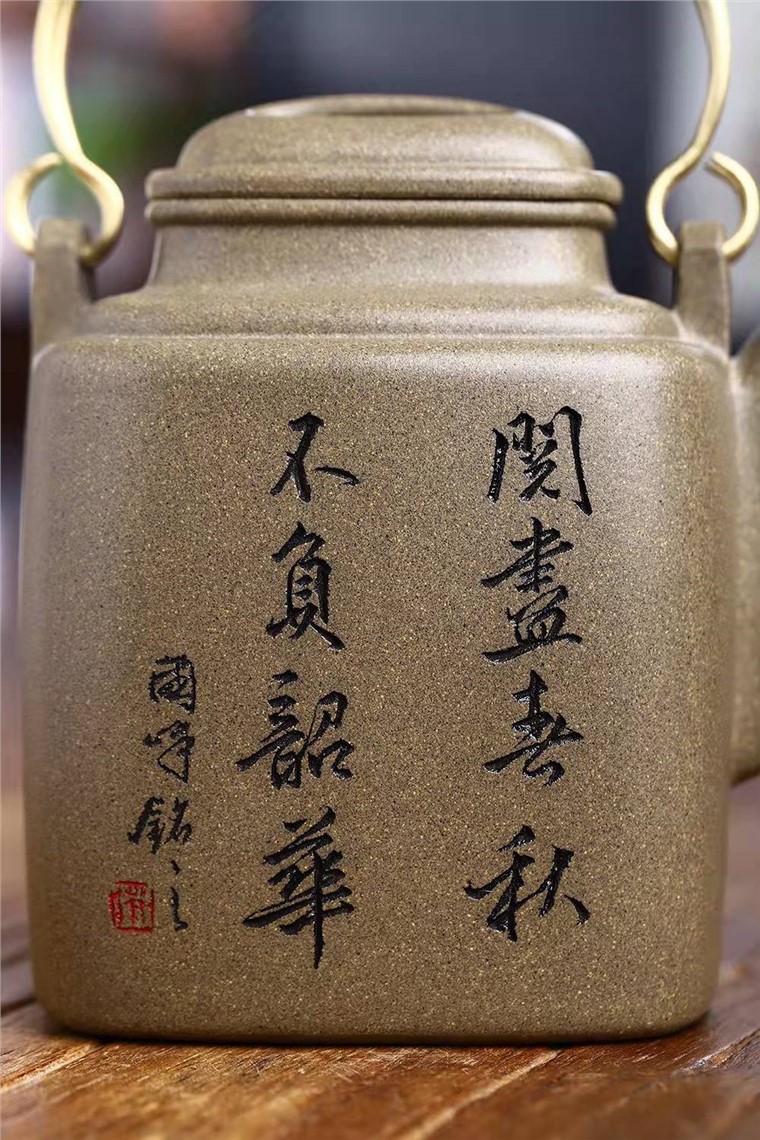 閱盡春秋
不負韶華
國峰銘之